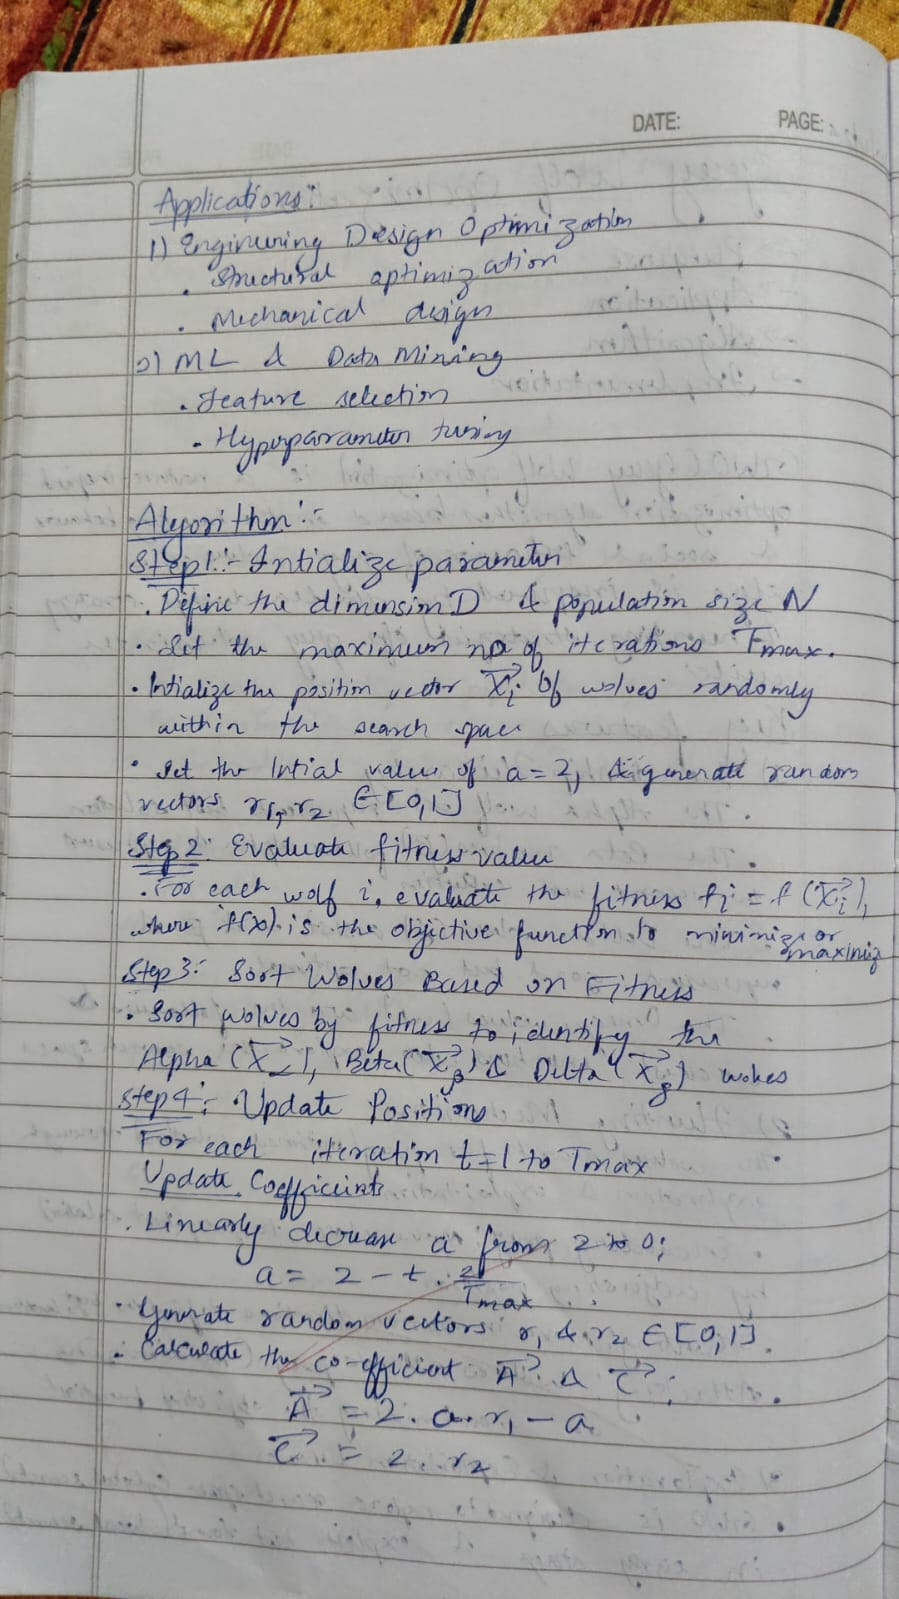 DATE: PAGE:
Applications:
1) Engineering Design Optimization
. Structural optimization
. Mechanical design
2) ML & Data Mining
. Feature selection
. Hyperparameter tuning
Algorithm :-
Step1:- Intialize parameter
. Define the dimension D & population size N
. Set the maximum no of iterations Tmax.
. Intialize the position vector X⃗i of wolves randomly
within the search space
. Set the Intial value of a=2, & generate random
vectors r1, r2 ∈ [0,1]
Step 2: Evaluate fitness value
. For each wolf i, evaluate the fitness fi = f(X⃗i),
where f(x) is the objective function to minimize or
maximiz
Step 3: Sort Wolves Based on Fitness
. Sort wolves by fitness to identify the
Alpha (X⃗α), Beta (X⃗β) & Delta (X⃗δ) wolves
Step 4: Update Positions
For each iteration t=1 to Tmax
Update Coefficients
. Linearly decrease a from 2 to 0;
a = 2 - t . 2/Tmax
. Generate random vectors r1 & r2 ∈ [0,1].
. Calculate the co-efficient A⃗ & C⃗ :
A⃗ = 2. a. r1 - a
C⃗ = 2. r2